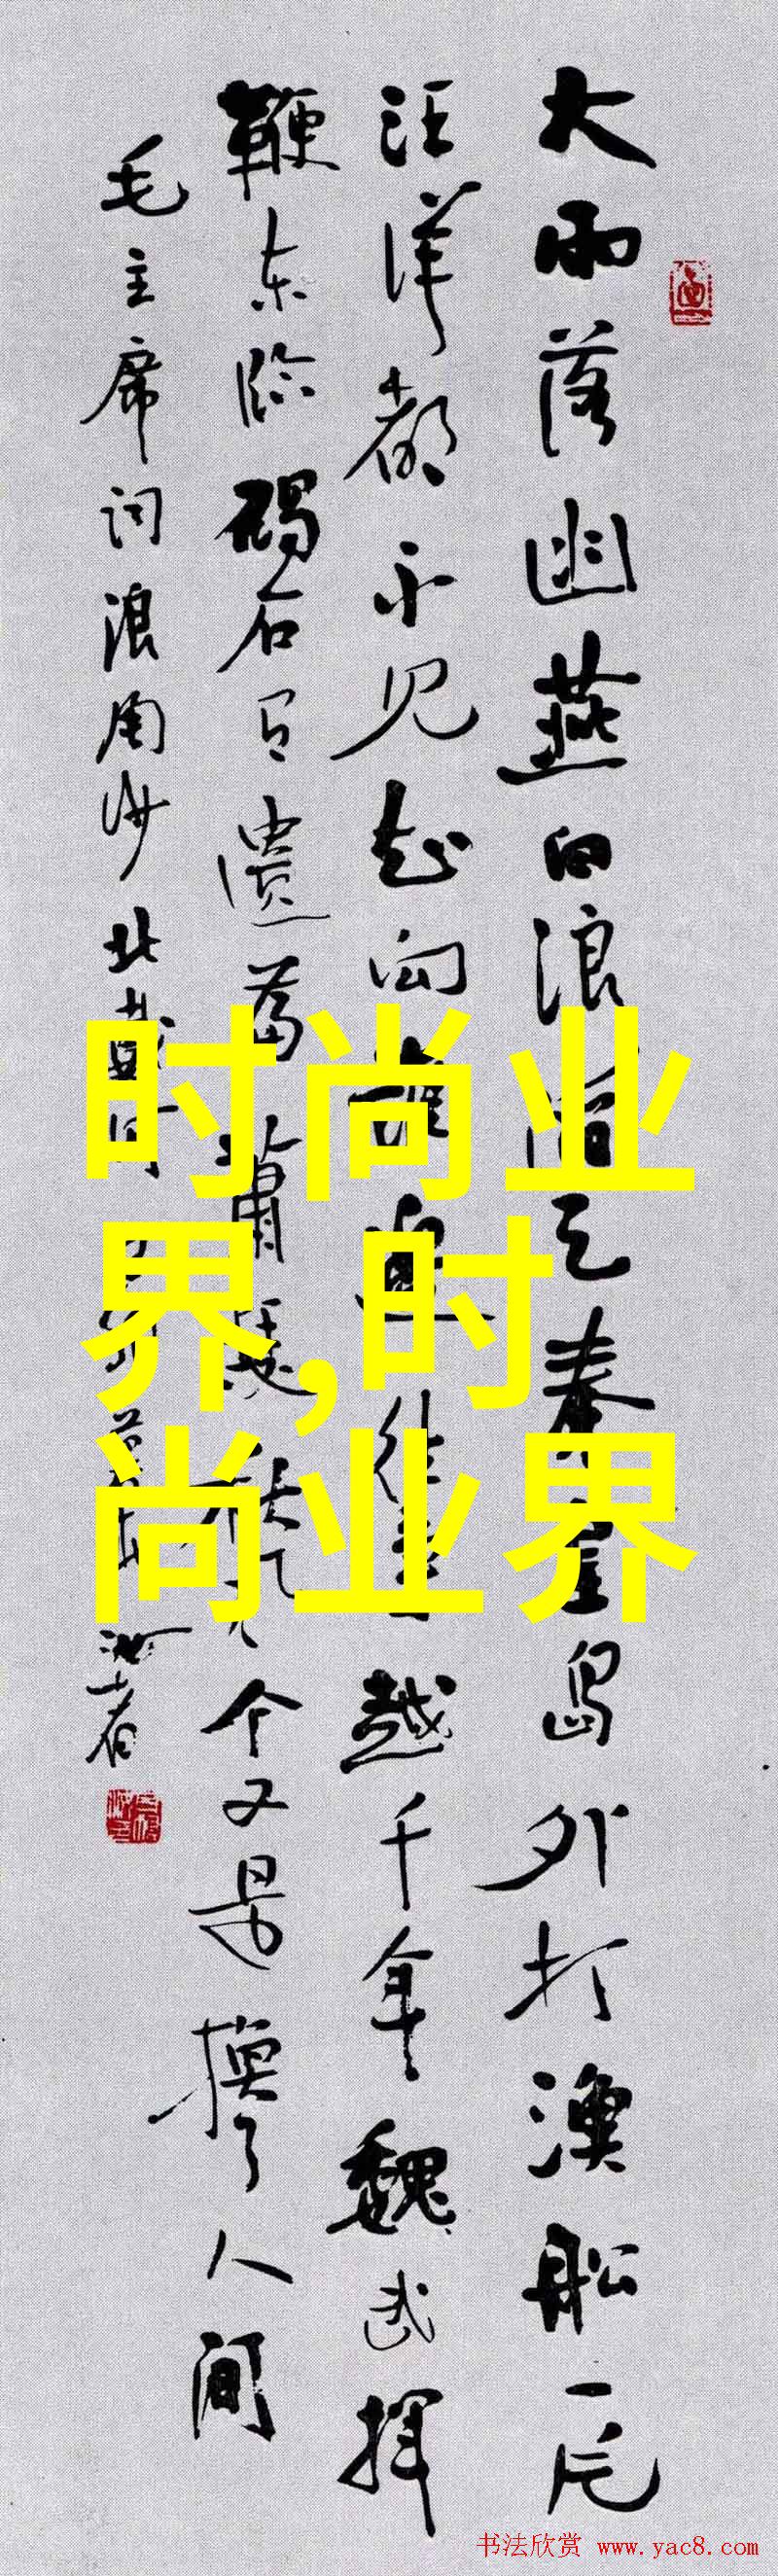 大雨落幽燕白浪滔天秦皇島外打漁船一片
汪洋都不见知向誰邊往事越千年魏武揮
鞭东临碣石有遺篇蕭瑟秋风今又是換了人間
毛主席词浪淘沙北戴河
时尚业
界,时
尚业界
书法欣赏 www.yac8.com